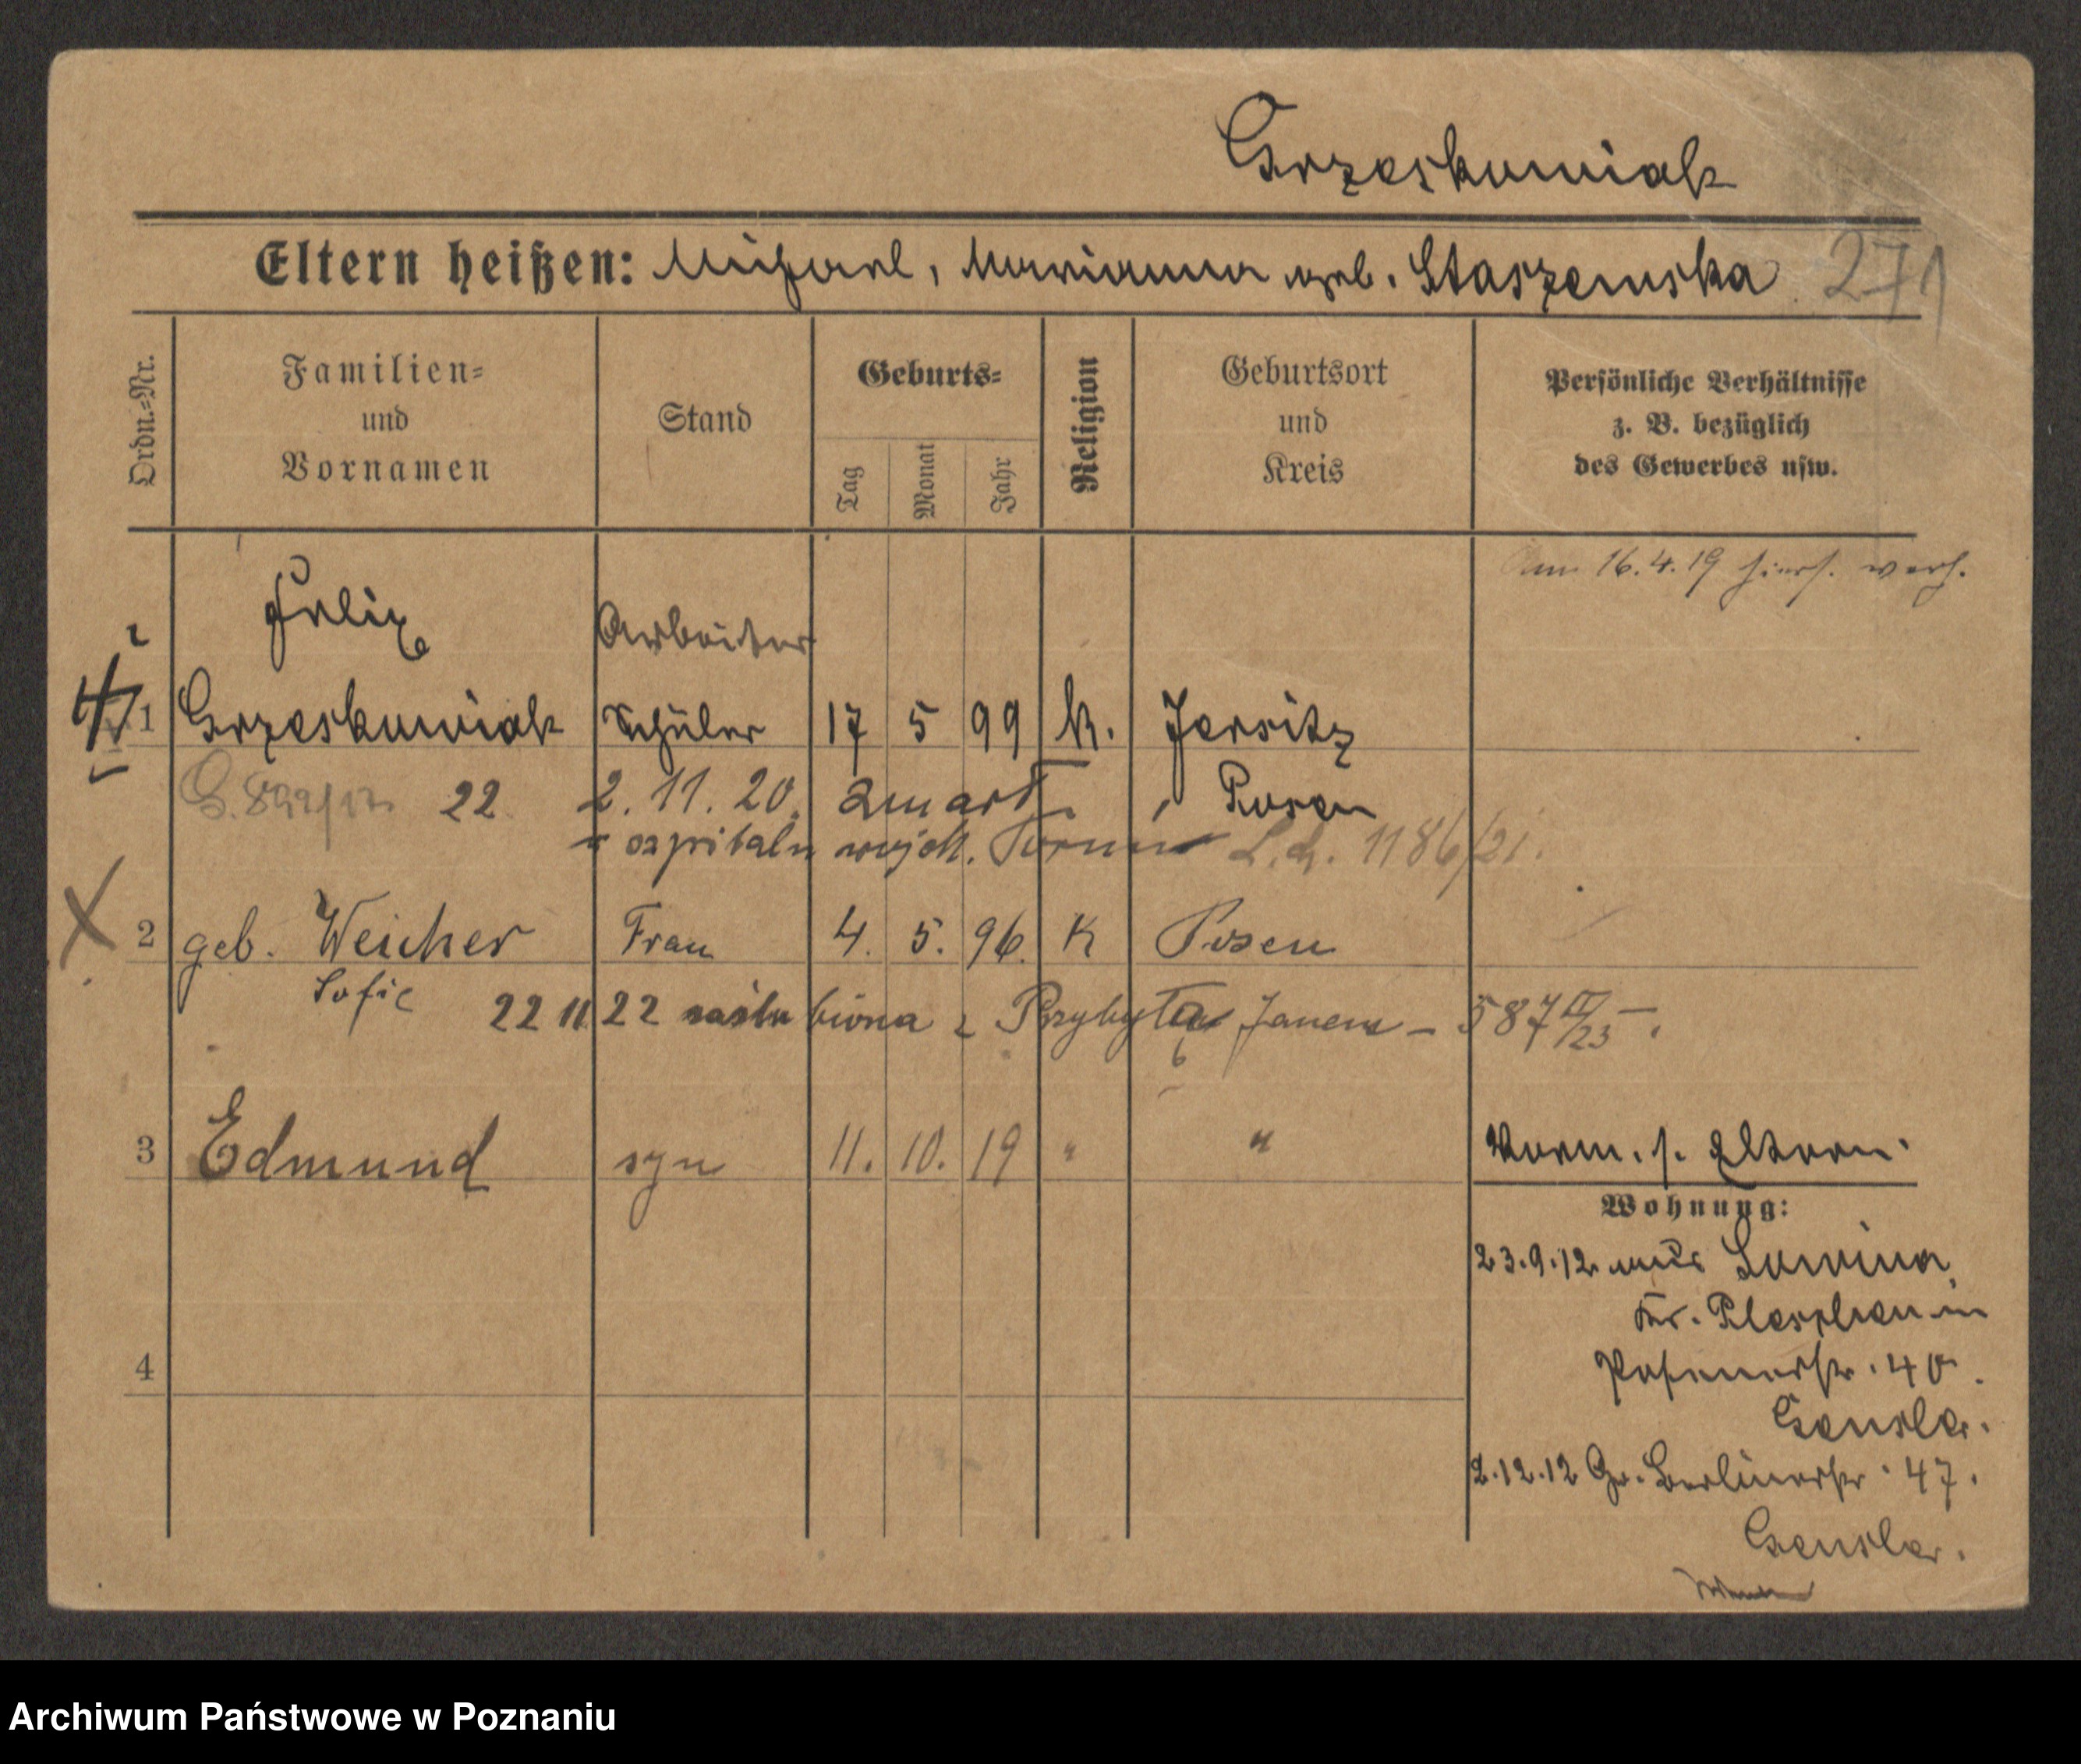 Grzeskowiak
Eltern heißen: Michael, Marianna geb. Staszewska 271
Ordn.=Nr.
Familien=
und
Vornamen
Stand
Geburts=
Tag
Monat
Jahr
Religion
Geburtsort
und
Kreis
Persönliche Verhältnisse
z. B. bezüglich
des Gewerbes usw.
Am 16.4.19 hiers. verh.
Felix Arbeiter
1 Grzeskowiak Schüler 17 5 99 K. Jersitz
22 2. 11. 20. zmarł Posen
w szpitalu wojsk. Toruń L.dz. 1186/21.
2 geb. Weicher Frau 4. 5. 96. K Posen
Sofie
22 11 22 zaślubiona z Przybyła Janem - 587 IV/23 -.
3 Edmund syn 11. 10. 19 " "
Vorm. s. Eltern.
Wohnung:
23.9.12 aus Lowina,
Kr. Pleschen in
Posenerstr. 40.
Gensler.
4
2.12.12 Gr. Berlinerstr. 47.
Gensler.
Archiwum Państwowe w Poznaniu